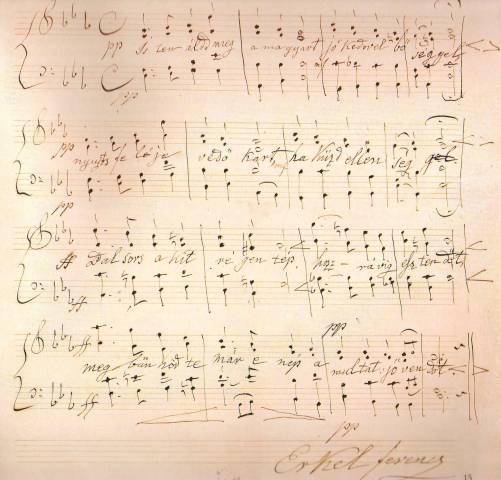 pp Isten áldd meg a magyart jó kedvvel bő séggel
pp
pp nyujts fe léje vedő kart ha küzd ellen ség gel
pp
ff Bal sors a kit ré gen tép hoz - rá vig esz ten dőt
ff
ff pp
meg bűn hőd te már e nép a multat jö ven dőt
ff
pp
Erkel ferencz